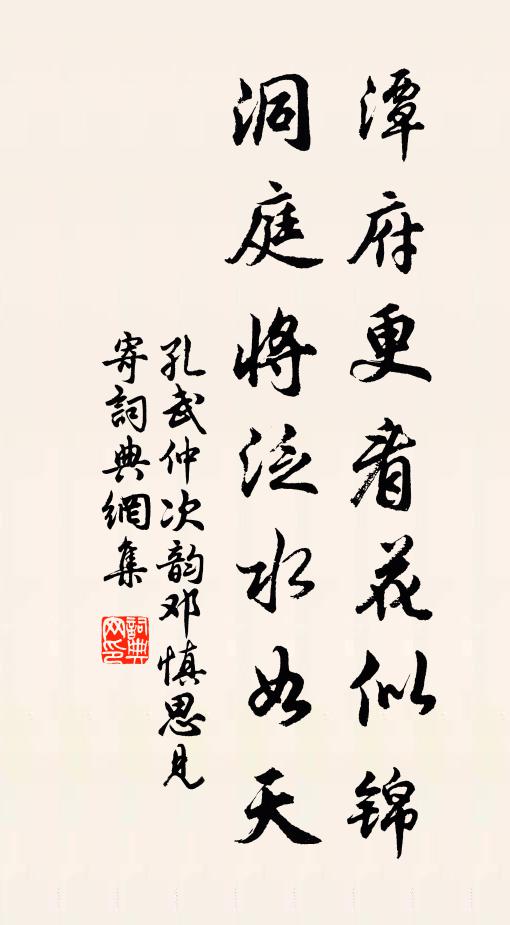 潭府更看花似锦
洞庭将泛水如天
孔武仲次韵邓慎思见
寄詞典網集
詞典
网印